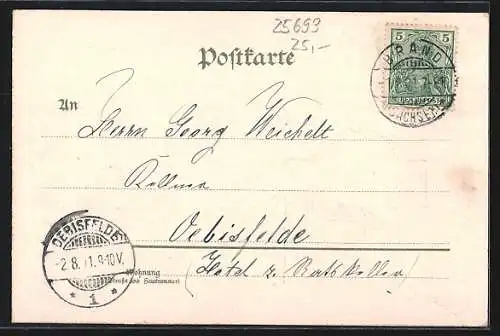 25693
25,-
Postkarte
5 5
BRAND
SACHSEN
An
Herrn Georg Weichelt
Kellner
Oebisfelde
OEBISFELDE
-2.8. 1. 9-10V.
* 1 *
Wohnung
(Straße und Hausnummer)
(Hotel z. Ratskeller)